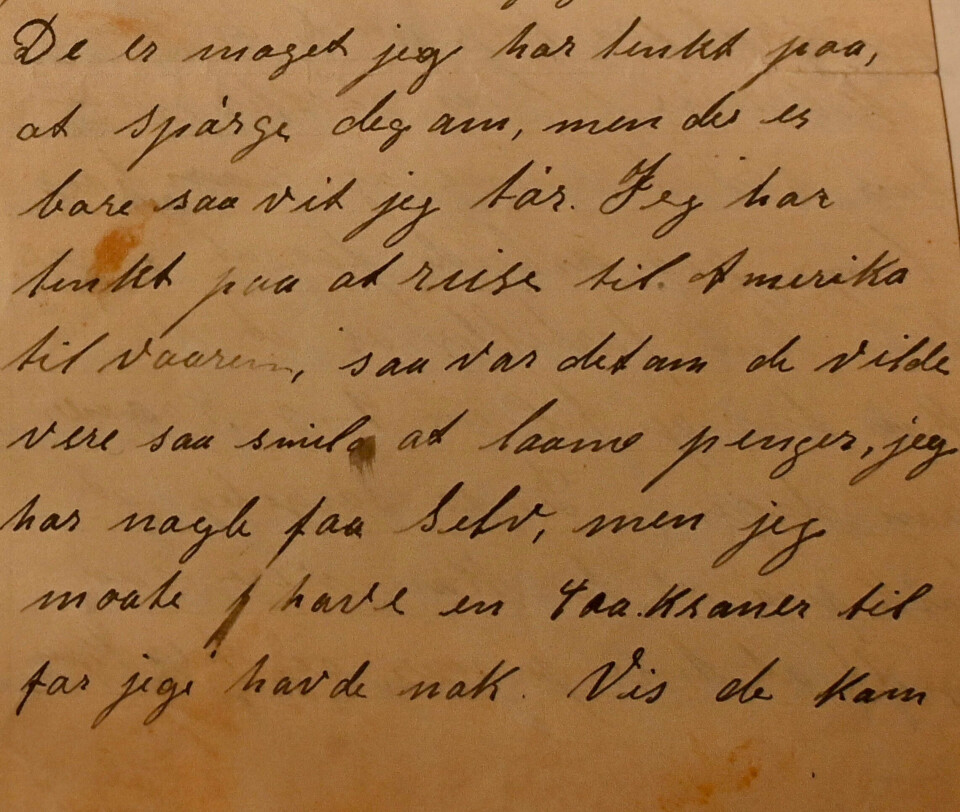 De er moget jeg har tenkt paa,
at spørge deg om, men de er
bare saa vit jeg tør. Jeg har
tenkt paa at reise til Amerika
til vaaren, saa var det om de vilde
vere saa snild at laane penger, jeg
har nogle faa Selv, men jeg
maate have en 400. Kroner til
for jeg havde nok. Vis de kom